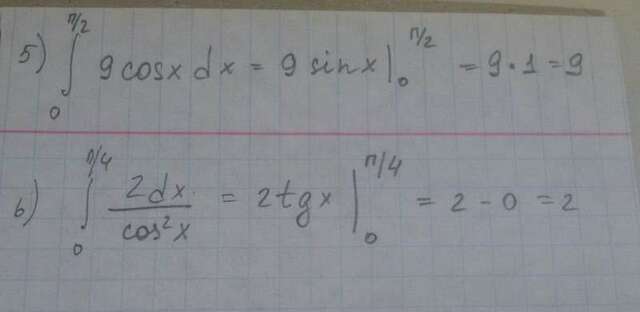 5) ∫₀^(π/2) 9 cosx dx = 9 sinx |₀^(π/2) = 9·1 = 9
6) ∫₀^(π/4) 2dx/cos²x = 2tgx |₀^(π/4) = 2 - 0 = 2